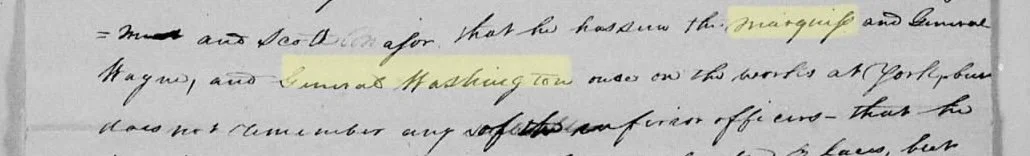 = and Scott Major, that he has seen the Marquiss and General
Wayne, and General Washington once on the works at York, but
does not remember any of the inferior officers - that he
but